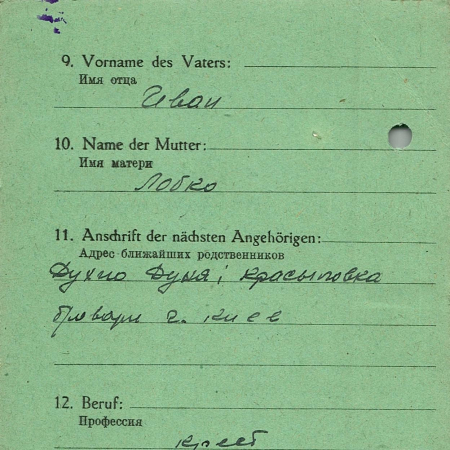 9. Vorname des Vaters:
Имя отца
Иван
10. Name der Mutter:
Имя матери
Лобко
11. Anschrift der nächsten Angehörigen:
Адрес ближайших родственников
Духно Дуня; Красыловка
г. Киев
12. Beruf:
Профессия
крест